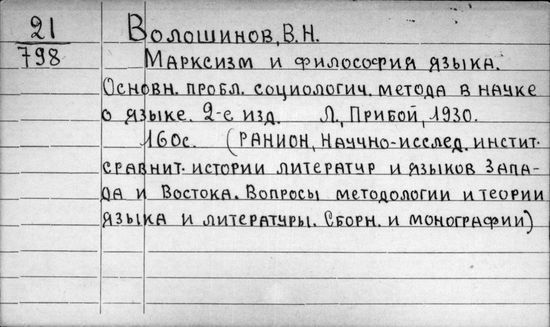 21
798
Волошинов, В.Н.
Марксизм и философия языка.
Основн. пробл. социологич. метода в науке
о языке. 2-е изд. Л., Прибой, 1930.
160с. (РАНИОН, Научно-исслед. инстит.
сравнит. истории литератур и языков Запа-
да и Востока. Вопросы методологии и теории
языка и литературы. Сборн. и монографии)